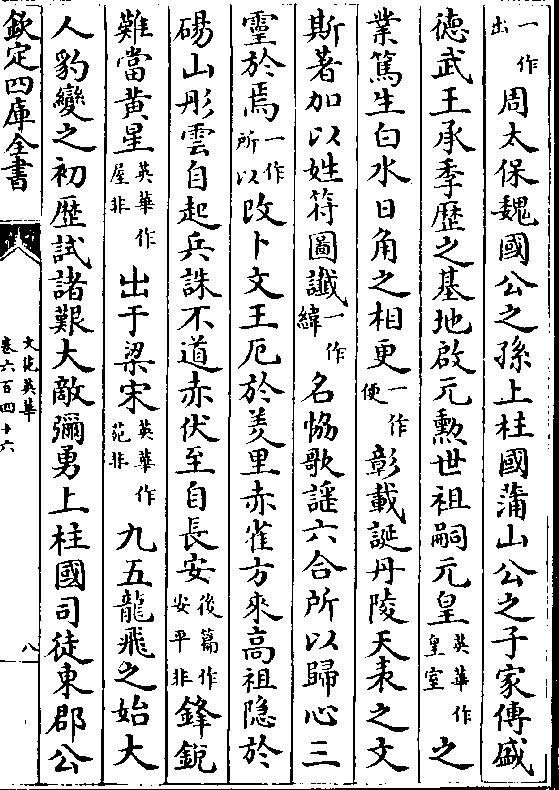 一作出周太保魏國公之孫上柱國蒲山公之子家傳盛
德武王承季歴之基地啟元勲世祖嗣元皇英華作皇室之
業篤生白水日角之相更一作便彰載誕丹陵天表之文
斯著加以姓符圖讖一作緯名恊歌謡六合所以歸心三
靈於焉一作所以改卜文王厄於羑里赤雀方來高祖隐於
碭山彤雲自起兵誅不道赤伏至自長安後篇作安平非鋒鋭
難當黄星英華作屋非出于梁宋英華作苑非九五龍飛之始大
人豹變之初歴試諸艱大敵彌勇上柱國司徒東郡公
欽定四庫全書
文苑英華
卷六百四十六
八